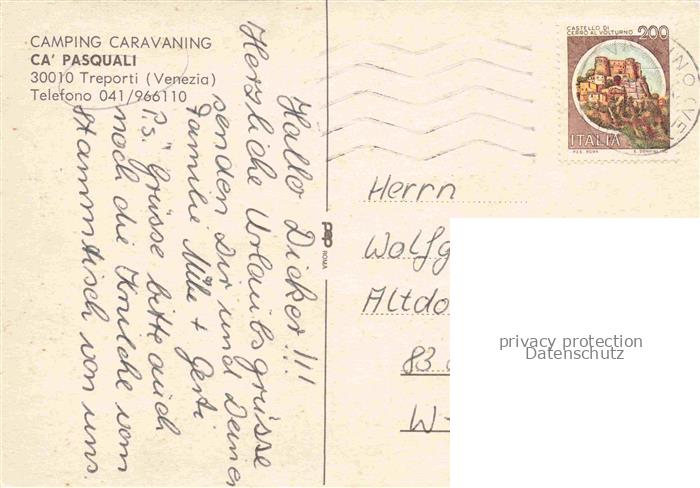 CAMPING CARAVANING
CA' PASQUALI
30010 Treporti (Venezia)
Telefono 041/966110
Hallo Dicker!!!
Herzliche Urlaubsgrüsse
senden Dir und Deiner
Familie Mike + Gerti
P.s. Grüsse bitte auch
noch die Knilche vom
Stammtisch von uns.
pep
ROMA
CASTELLO DI
CERRO AL VOLTURNO
200
ITALIA
Herrn
Wolfg
Altdo
83
W-
privacy protection
Datenschutz